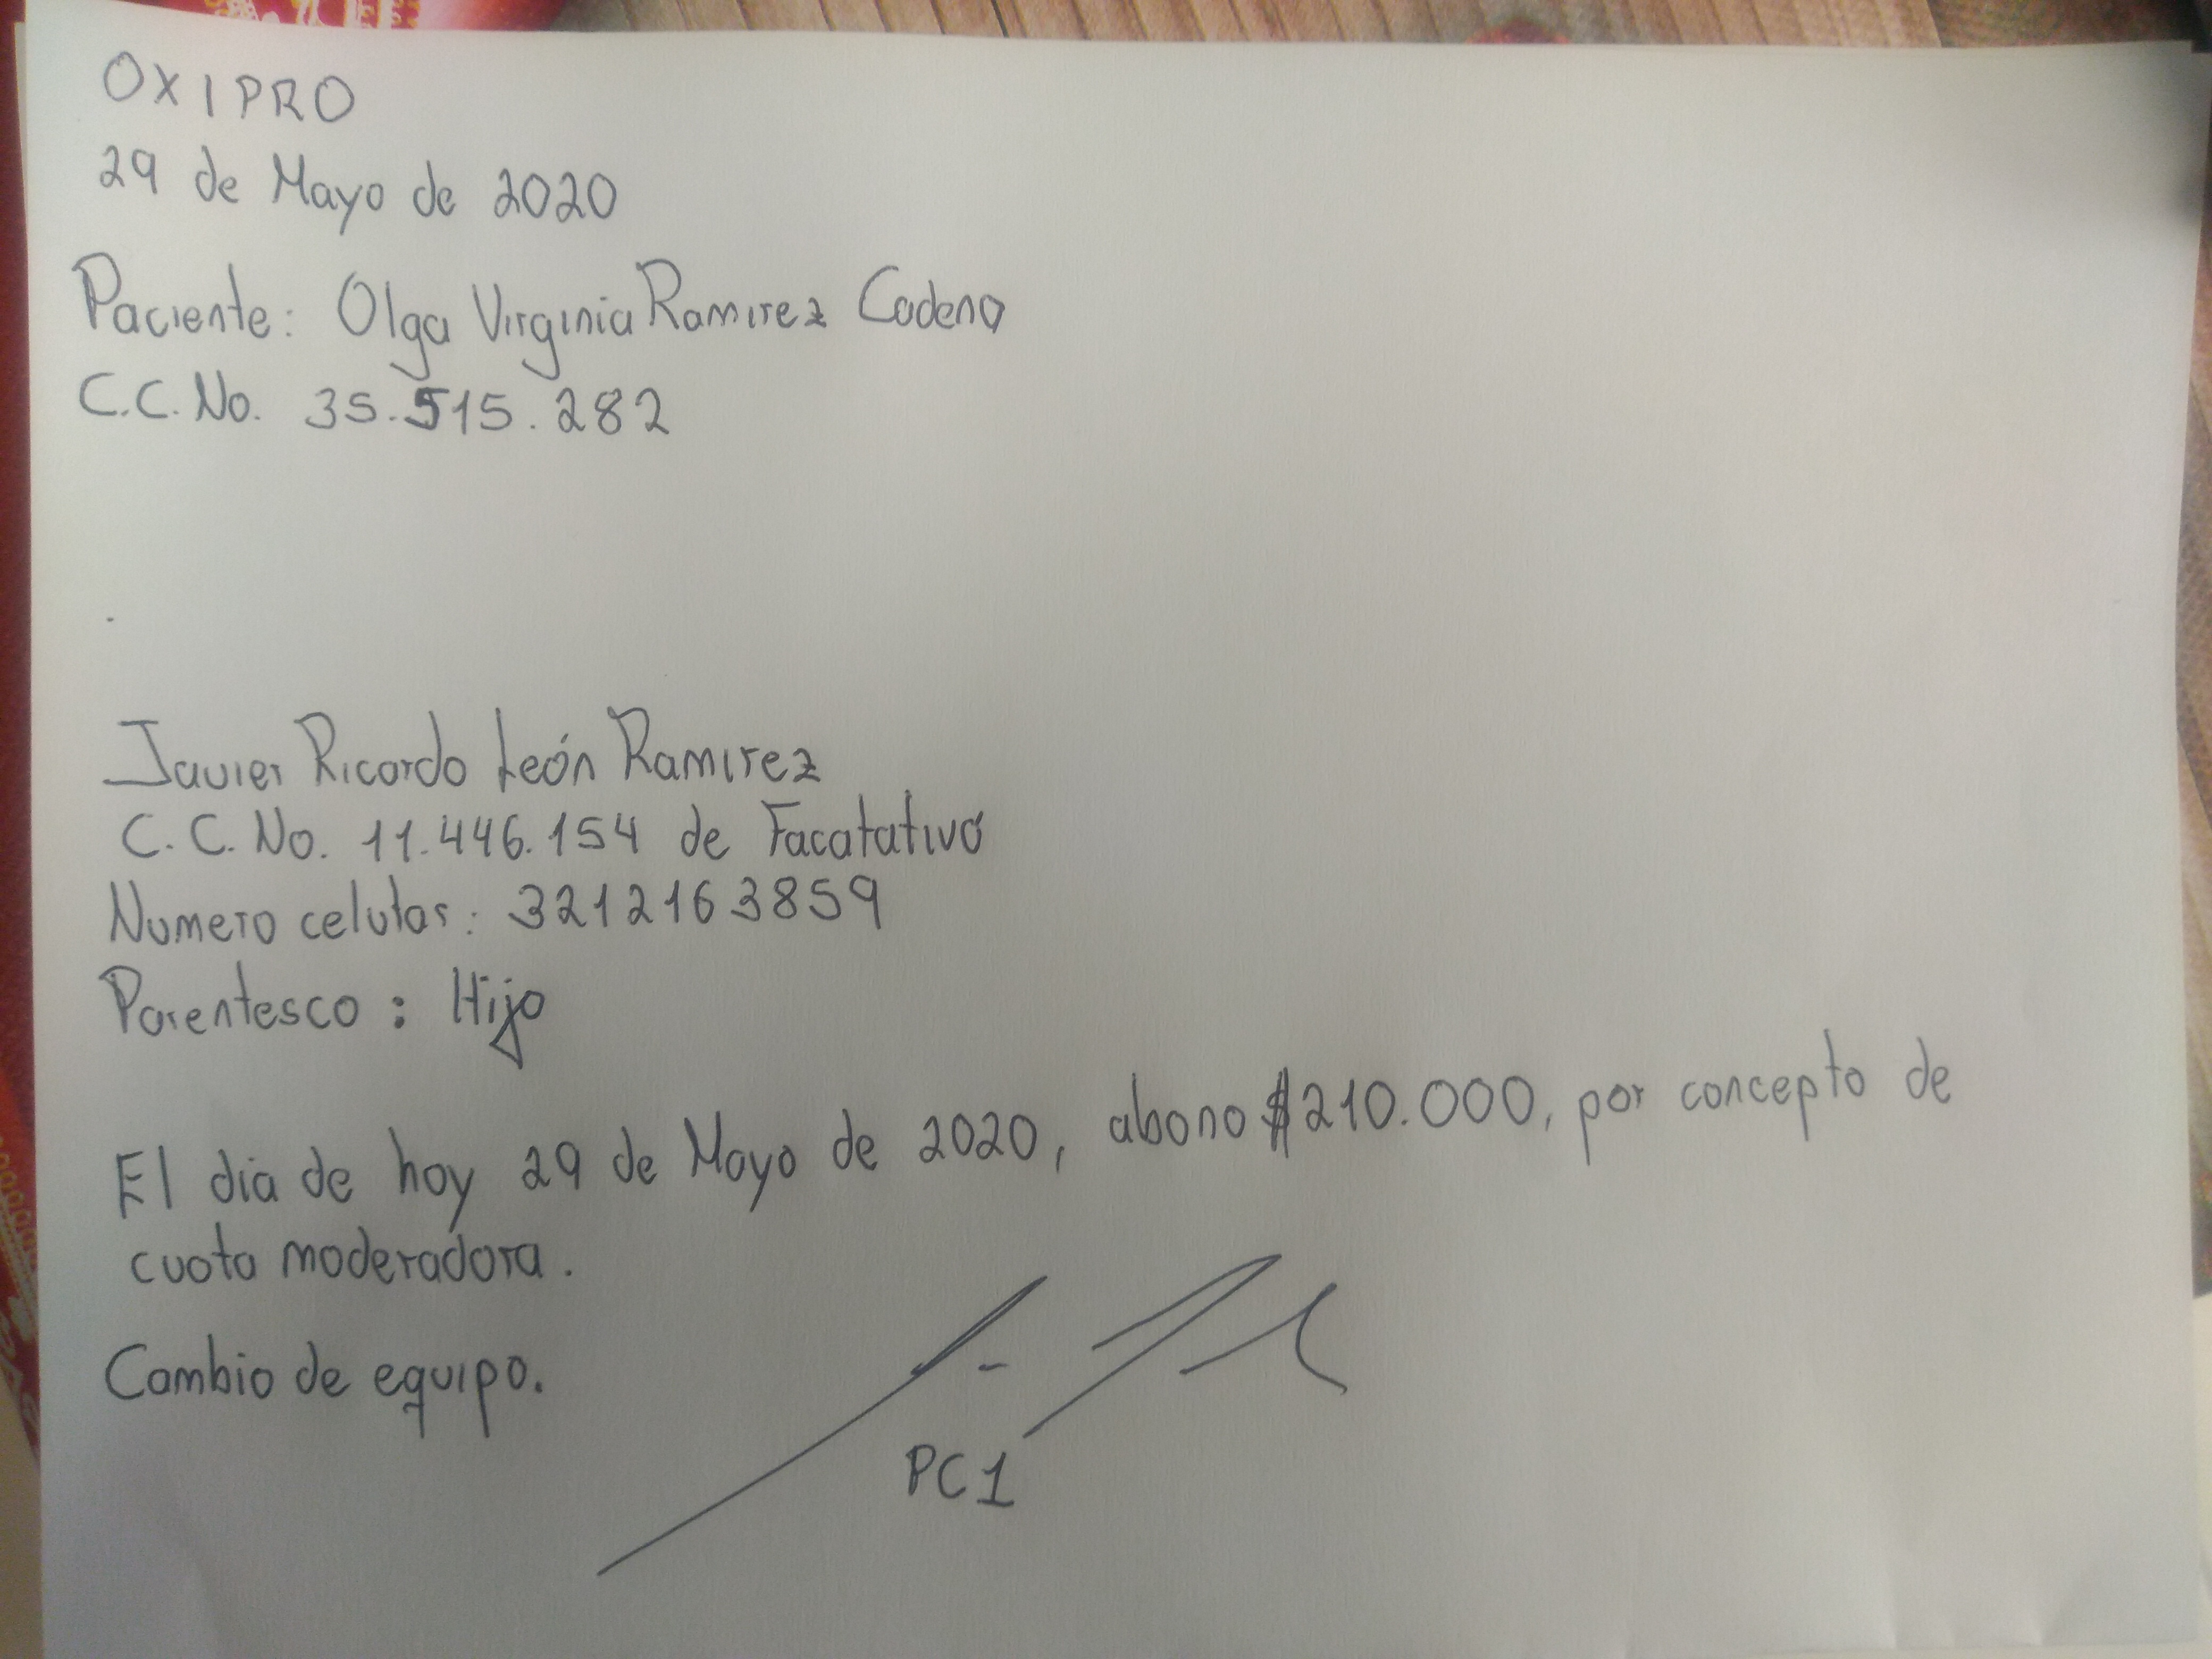 OXIPRO
29 de Mayo de 2020
Paciente: Olga Virginia Ramirez Cadena
C.C. No. 35.515.282
Javier Ricardo León Ramirez
C.C. No. 11.446.154 de Facatativá
Numero celular: 3212163859
Parentesco: Hijo
El dia de hoy 29 de Mayo de 2020, abono $210.000, por concepto de
cuota moderadora.
Cambio de equipo.
PC1